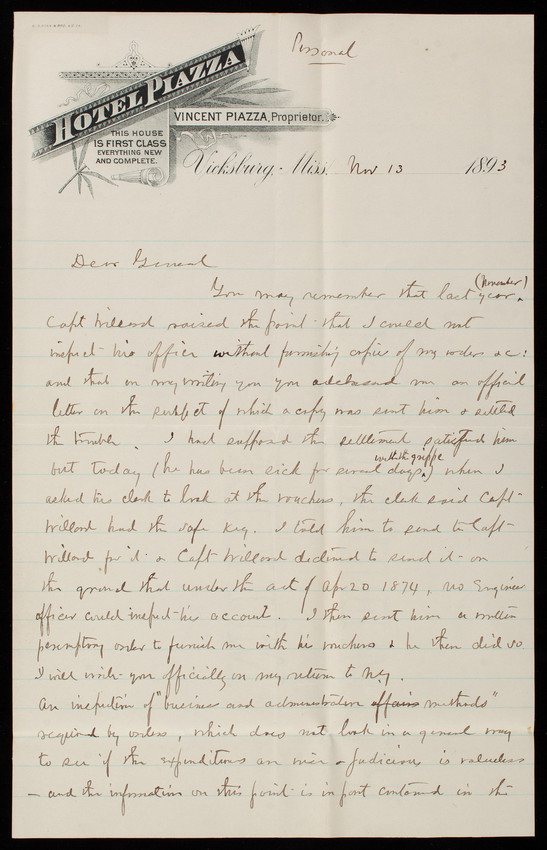 Personal
HOTEL PIAZZA
VINCENT PIAZZA, Proprietor.
THIS HOUSE
IS FIRST CLASS
EVERYTHING NEW
AND COMPLETE.
Vicksburg, Miss. Nov 13 1893
Dear General
You may remember that last year (November)
Capt Willard raised the point that I could not
inspect his office without furnishing copies of my orders &c:
and that on my writing you you addressed me an official
letter on the subject of which a copy was sent him & settled
the trouble. I had supposed the settlement satisfied him
but today (he has been sick for several days with the grippe) when I
asked his clerk to look at the vouchers, the clerk said Capt
Willard had the safe key. I told him to send to Capt
Willard for it & Capt Willard declined to send it on
the ground that under the act of Apr 20 1874, no Engineer
officer could inspect his account. I then sent him a written
peremptory order to furnish me with his vouchers & he then did so.
I will write you officially on my return to N.Y.
An inspection of "business and administrative affairs methods"
required by orders, which does not look in a general way
to see if the expenditures are wise & judicious is valueless
– and the information on this point is in part contained in the